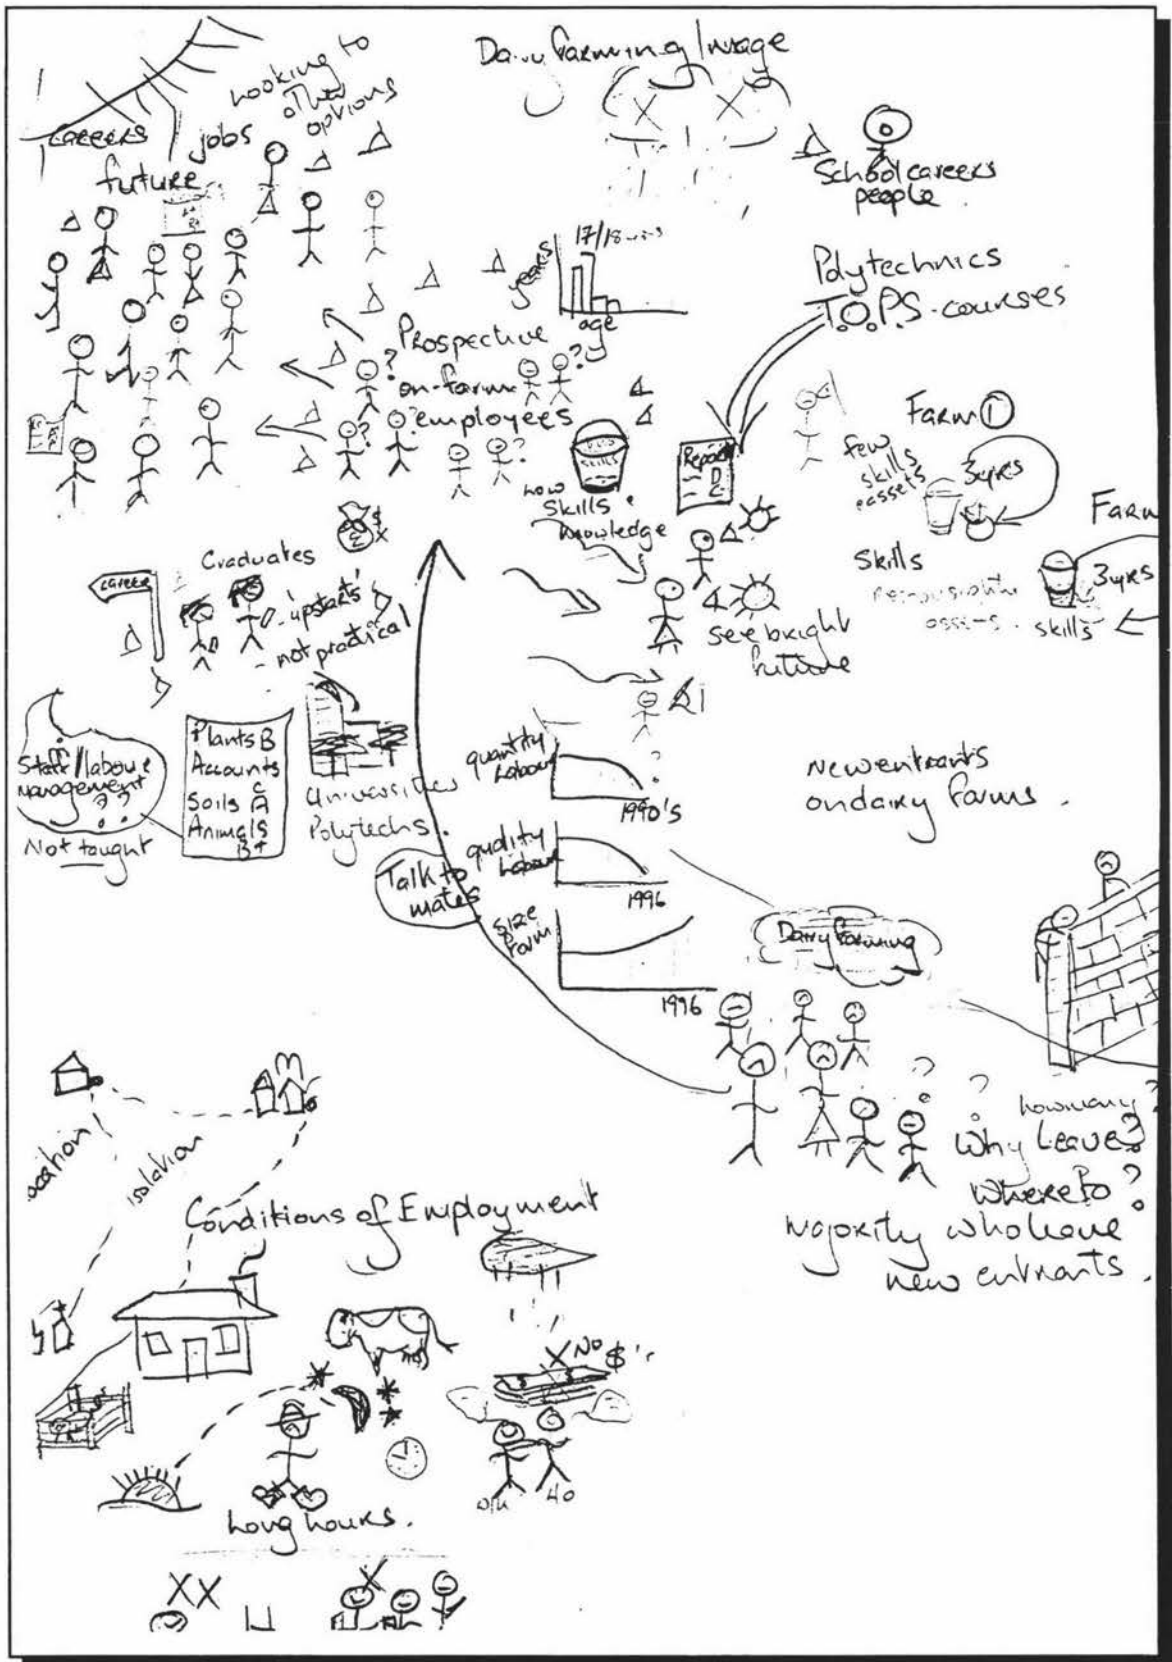 Dairy Farming Image
Looking to
other
options
careers
jobs
future
School careers
people
17/18
years
age
Polytechnics
T.O.P.S. courses
Prospective
on-farm
employees
? ? ? ? ?
Farm ①
few
skills
assets
3yrs
Report
D
C
SKILLS
low
Skills
knowledge
Farm
Skills
assets
3yrs
skills
$
x
Graduates
career
- 'upstarts'
- not practical
see bright
future
Staff/labour
management
? ?
Not taught
Plants B
Accounts
C
Soils A
Animals
B+
Universities
Polytechs
quantity
Labour
?
1990's
New entrants
on dairy farms.
Talk to
mates
quality
Labour
1996
size
farm
1996
Dairy farming
? ?
how many?
Why Leave?
Where to?
majority who leave
new entrants.
location
isolation
Conditions of Employment
X No $'s
o/m
40
Long hours.
X X
X